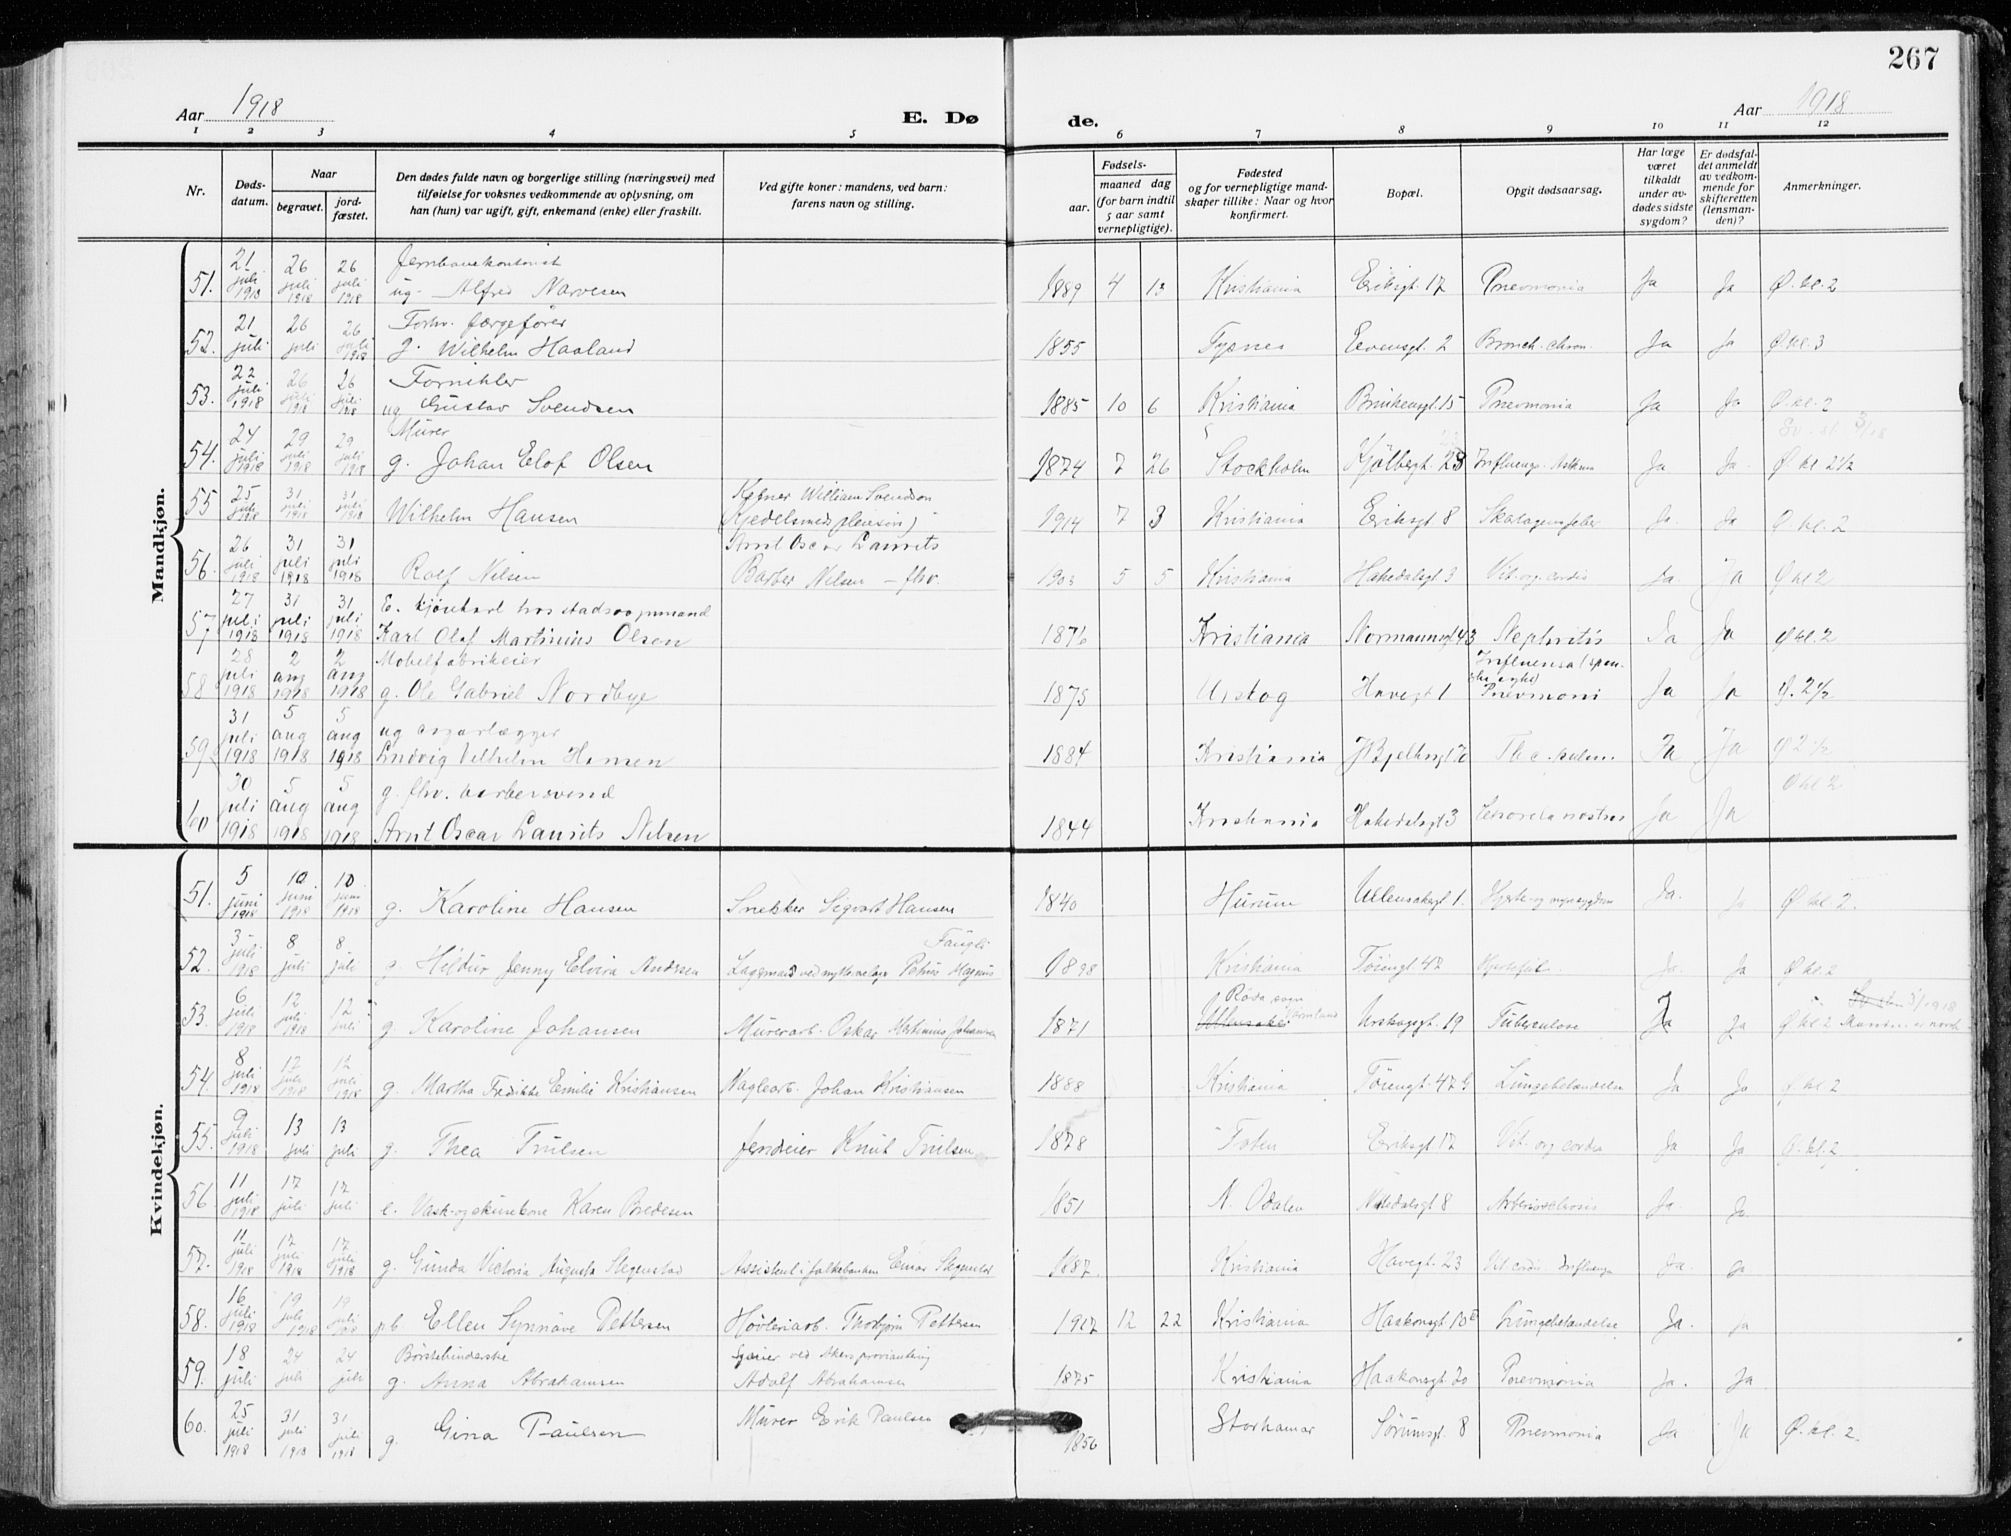 267
Aar 1918
E. Dø
de.
Aar 1918
1 2 3 4 5 6 7 8 9 10 11 12
Nr.
Dødsdatum.
Naar
begravet.
jordfæstet.
Den dødes fulde navn og borgerlige stilling (næringsvei) med
tilføielse for voksnes vedkommende av oplysning, om
han (hun) var ugift, gift, enkemand (enke) eller fraskilt.
Ved gifte koner: mandens, ved barn:
farens navn og stilling.
Fødsels-
aar.
maaned dag
(for barn indtil
5 aar samt
vernepligtige).
Fødested
og for vernepligtige mand-
skaper tillike: Naar og hvor
konfirmert.
Bopæl.
Opgit dødsaarsag.
Har læge
været
tilkaldt
under av-
dødes sidste
sygdom?
Er dødsfal-
det anmeldt
av vedkom-
mende for
skifteretten
(lensman-
den)?
Anmerkninger.
Mandkjøn.
51. 21 juli 1918 26 juli 1918 26 juli 1918 Jernbanekontorist
ug. Alfred Narvesen 1889 4 13 Kristiania Eriksgt. 17 Pnevmonia Ja Ja Ø. kl. 2
52. 21 juli 26 juli 26 juli 1918 Forhv. færgefører
g. Wilhelm Haaland 1855 Tysnes Eevensgt. 2 Bronch. chron. Ja Ja Ø kl. 3
53. 22 juli 1918 26 juli 1918 26 juli 1918 Fornikler
ug Gustav Svendsen 1885 10 6 Kristiania Brinkensgt. 15 Pnevmonia Ja Ja Ø. kl. 2
54. 24 juli 1918 29 juli 1918 29 juli 1918 Murer
g. Johan Elof Olsen 1874 7 26 Stockholm Kjølbergt. 28 Influenza. Asthma Ja Ja. Ø. kl 2½
55 25 juli 1918 31 juli 1918 31 juli 1918 Wilhelm Hansen Kelner William Svendson
Kjedelsmed 1914 7 3 Kristiania Eriksgt 8 Skarlagensfeber Ja. Ja Ø kl. 2
56. 26 juli 1918 31 juli 1918 31 juli 1918 Rolf Nilsen Arnt Oscar Laurits
Barber Nilsen – fhv. 1903 5 5 Kristiania Hakedalsgt 3 Vit. org. cordis Ja Ja Ø kl 2
57 27 juli 1918 31 juli 1918 31 juli 1918 E. kjørekarl hos stadsoopmand
Karl Olaf Martinius Olsen 1876 Kristiania Normannsgt 43 Nephritis Ja Ja Ø kl. 2
58 28 juli 1918 2 aug 1918 2 aug 1918 Møbelfabrikeier
g. Ole Gabriel Nordbye 1875 Urskog Havegt 1 Influensa (spanske syke)
Pnevmoni Ja Ja Ø. 2½
59 31 juli 1918 5 aug 1918 5 aug 1918 ug
Ludvig Vilhelm Hansen 1884 Kristiania Tbc. pulm. Ja Ja Ø 2½
60 30 juli 1918 5 aug 1918 5 aug 1918 g. fhv. barbersvend
Arnt Oscar Laurits Nilsen 1844 Kristiania Hakedalsgt 3 Cholera nostras Ja Ja Ø kl 2
Kvindekjøn.
51. 5 juni 1918 10 juni 1918 10 juni 1918 g. Karoline Hansen Snekker Sigvart Hansen 1840 Hurum Ullensakergt 1. Hjerte- og nyresygdom Ja. Ja Ø kl. 2.
52. 3 juli 1918 8 juli 8 juli g. Hildur Jenny Elvira Andresen Petrus Magnus 1898 Kristiania Tøiengt. 47 Hjertefeil. Ja Ja Ø kl. 2
53. 6 juli 1918 12 juli 1918 12 juli g. Karoline Johansen Murerarb. Oskar Martinius Johansen 1871 Ullensaker Røda sogn Vermland Urskogsgt. 19 Tuberculose Ja Ja Ø kl 2
54. 8 juli 1918 12 juli 1918 12 juli 1918 g. Martha Fredrikke Emilie Kristiansen Naglearb. Johan Kristiansen 1888 Kristiania Tøiengt. 47 Lungebetændelse Ja Ja Ø. kl 2
55. 9 juli 1918 13 juli 13 juli g. Thea Trulsen Jerndreier Knut Trulsen 1878 Toten Eriksgt 17 Vit. org cordis Ja Ja Ø. kl. 2
56. 11 juli 1918 17 juli 17 juli e. Vask- og skurekone Karen Bredesen 1851 N. Odalen Nittedalsgt 8 Arteriosclerosis Ja. Ja.
57. 11 juli 1918 17 juli 1918 17 juli 1918 g. Gunda Victoria Augusta Stegenstad Assistent i folkebanken Einar Stegenstad 1887. Kristiania Havegt. 23 Vit. cordis. Influenza Ja. Ja
58. 16 juli 1918 19 juli 1918 19 juli 1918 p.b. Ellen Synnøve Pettersen Høvleriarb. Thorbjørn Pettersen 1917 12 22 Kristiania Haakonsgt. 10 Lungebetændelse Ja. Ja
59. 18 juli 24 juli 24 juli Børstebinderske
g. Anna Abrahamsen ved Akers proviantering
Adolf Abrahamsen 1875 Kristiania Haakonsgt. 20 Pnevmonia Ja. Ja
60. 25 juli 1918 31 juli 1918 31 juli 1918 g. Gina Paulsen Murer Erik Paulsen 1856 Storhamar Sørumsgt. 8 Pnevmonia Ja Ja Ø. kl. 2.